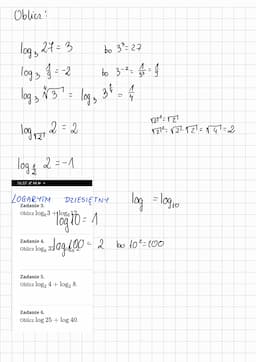 Oblicz:
log₃ 27 = 3 bo 3³ = 27
log₃ 1/9 = -2 bo 3⁻² = 1/3² = 1/9
log₃ ⁴√3 = log₃ 3^¼ = 1/4
√2¹ = √2
log√2 2 = 2 √2² = √2 · √2 = √4 = 2
log_½ 2 = -1
LOGARYTM DZIESIĘTNY log = log₁₀
Zadanie 3.
Oblicz log₆ 3 + log₆
log 10 = 1
Zadanie 4.
Oblicz
log 100 = 2 bo 10² = 100
Zadanie 5.
Oblicz log₂ 4 + log₂ 8
Zadanie 6.
Oblicz log 25 + log 40